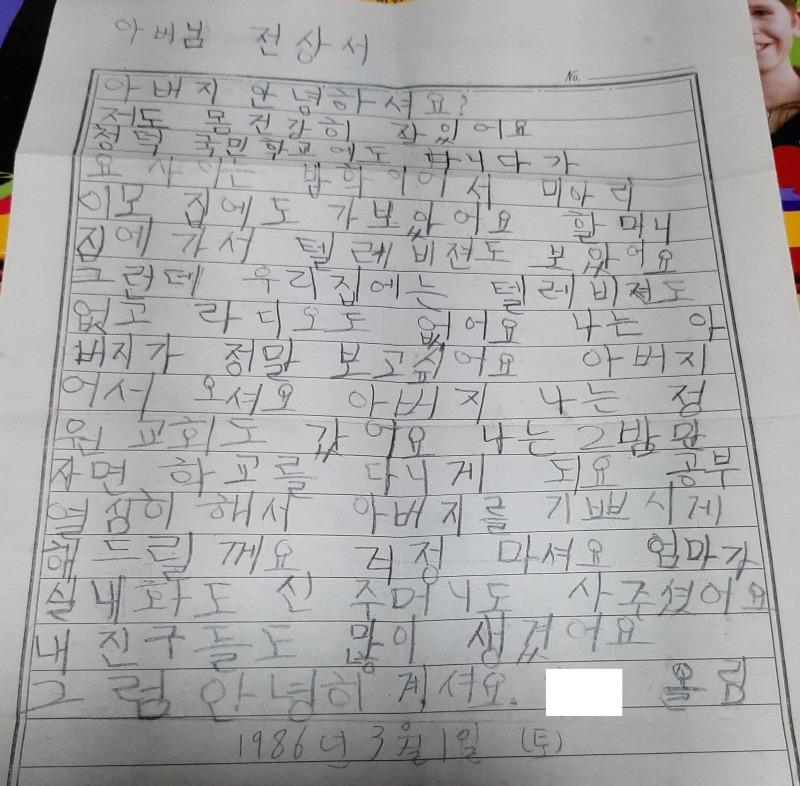 아버님 전상서
No.
아버지 안녕하셔요?
저도 몸 건강히 잘있어요
청덕 국민학교에도 다니다가
요 사이는 방학이어서 미아리
이모 집에도 가보았어요 할머니
집에 가서 텔레비젼도 보았어요
그런데 우리집에는 텔레비젼도
없고 라디오도 없어요 나는 아
버지가 정말 보고싶어요 아버지
어서 오셔요 아버지 나는 정
원 교회도 갔어요 나는 2밤만
자면 학교를 다니게 되요 공부
열심히 해서 아버지를 기쁘시게
해 드릴 께요 걱정 마셔요 엄마가
실내화도 신 주머니도 사 주셨어요
내 친구들도 많이 생겼어요
그럼 안녕히 계셔요. 올림
1986년 3월 1일 (토)